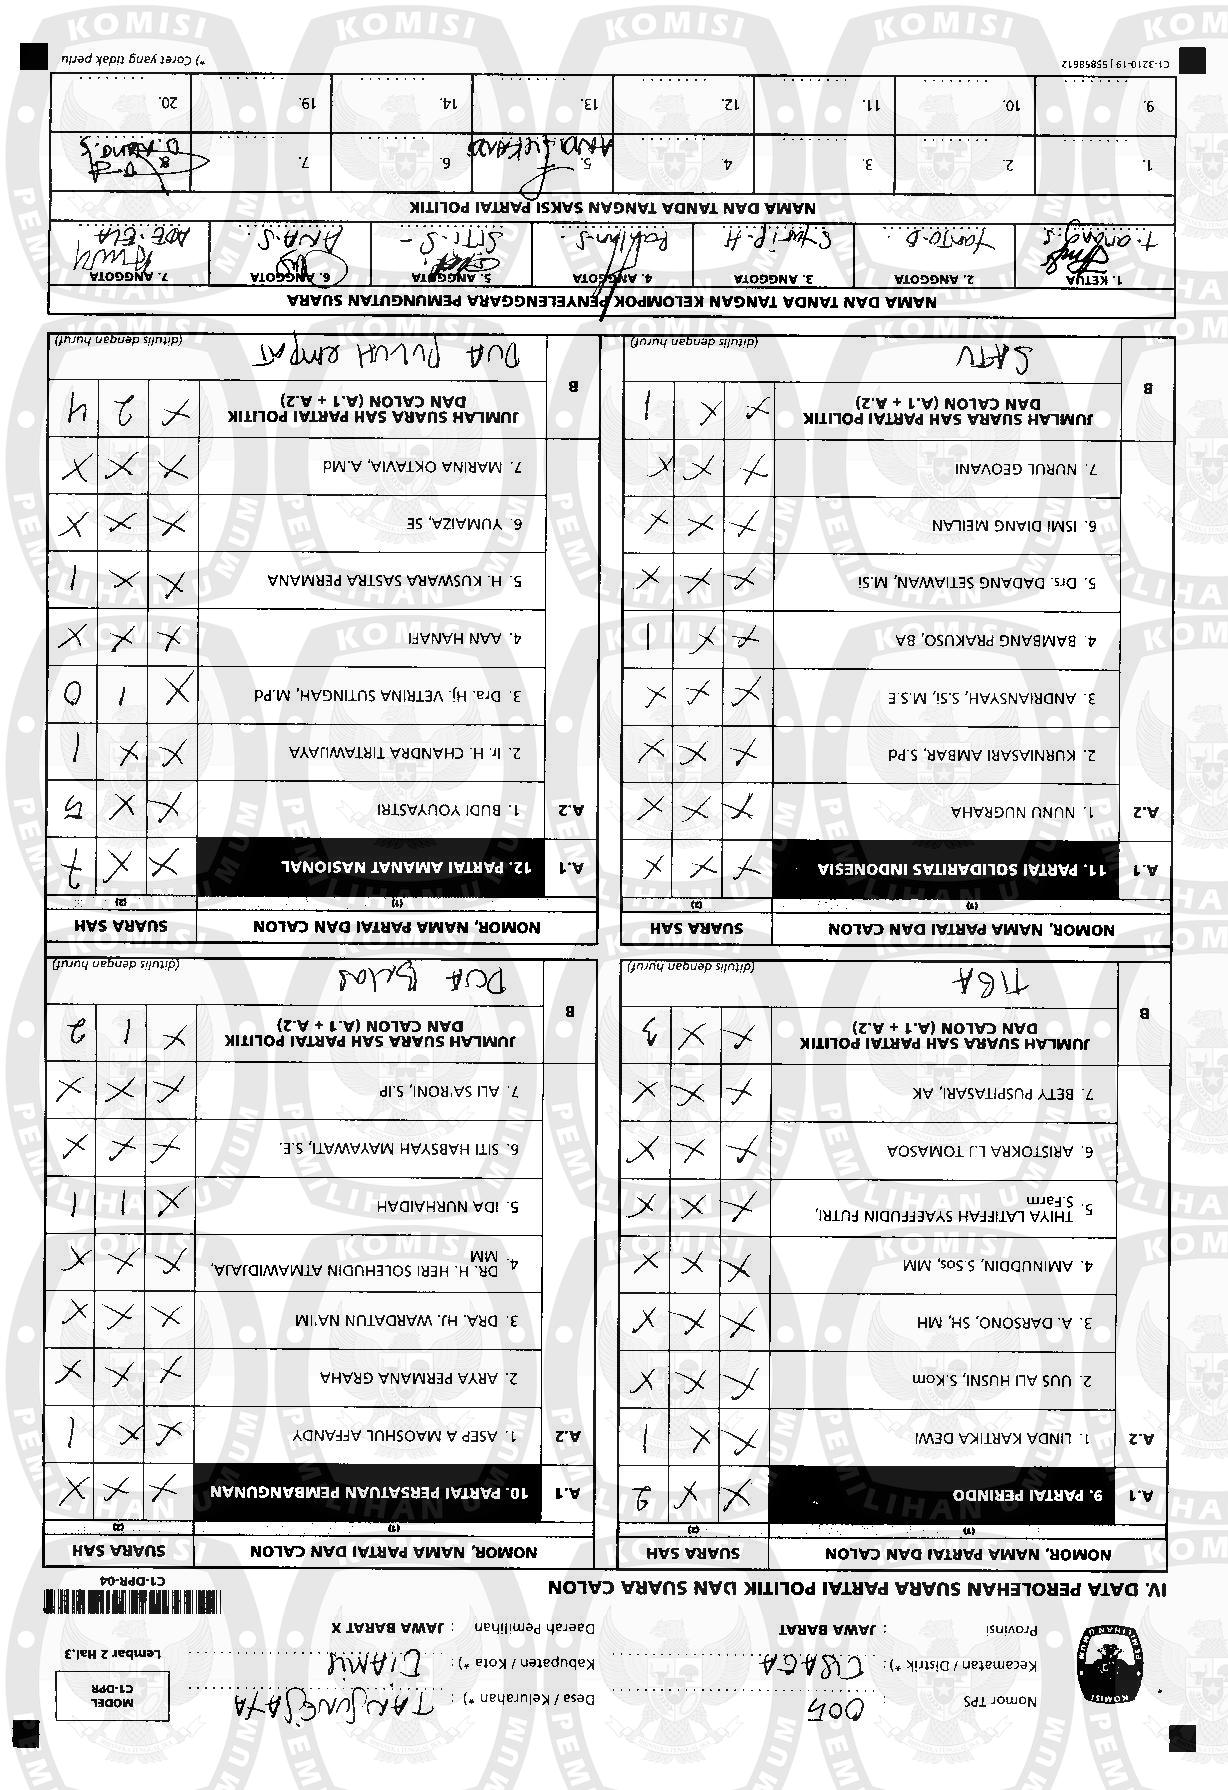 Nomor TPS : 005
Desa / Kelurahan *) : TANJUNGJAYA
MODEL
C1-DPR
Kecamatan / Distrik *) : CISAGA
Kabupaten / Kota *) : CIAMIS
Lembar 2 Hal.3
Provinsi : JAWA BARAT
Daerah Pemilihan : JAWA BARAT X
C1-DPR-04
IV. DATA PEROLEHAN SUARA PARTAI POLITIK DAN SUARA CALON
NOMOR, NAMA PARTAI DAN CALON SUARA SAH
(1) (2)
A.1 9. PARTAI PERINDO X X 2
A.2 1. LINDA KARTIKA DEWI X X 1
2. UUS ALI HUSNI, S.Kom X X X
3. A. DARSONO, SH, MH X X X
4. AMINUDDIN, S.Sos, MM X X X
5. THIYA LATIFFAH SYAEFFUDIN FUTRI, S.Farm X X X
6. ARISTOKRA L.J TOMASOA X X X
7. BETY PUSPITASARI, AK X X X
B JUMLAH SUARA SAH PARTAI POLITIK
DAN CALON (A.1 + A.2) X X 3
TIGA
(ditulis dengan huruf)
NOMOR, NAMA PARTAI DAN CALON SUARA SAH
(1) (2)
A.1 10. PARTAI PERSATUAN PEMBANGUNAN X X X
A.2 1. ASEP A MAOSHUL AFFANDY X X 1
2. ARYA PERMANA GRAHA X X X
3. DRA. HJ. WARDATUN NA'IM X X X
4. DR. H. HERI SOLEHUDIN ATMAWIDJAJA, MM X X X
5. IDA NURHAIDAH X 1 1
6. SITI HABSYAH MAYAWATI, S.E. X X X
7. ALI SA'RONI, S.IP X X X
B JUMLAH SUARA SAH PARTAI POLITIK
DAN CALON (A.1 + A.2) X 1 2
DUA Belas
(ditulis dengan huruf)
NOMOR, NAMA PARTAI DAN CALON SUARA SAH
(1) (2)
A.1 11. PARTAI SOLIDARITAS INDONESIA X X X
A.2 1. NUNU NUGRAHA X X X
2. KURNIASARI AMBAR, S.Pd X X X
3. ANDRIANSYAH, S.Si, M.S.E X X X
4. BAMBANG PRAKUSO, BA X X 1
5. Drs. DADANG SETIAWAN, M.Si X X X
6. ISMI DIANG MEILAN X X X
7. NURUL GEOVANI X X X
B JUMLAH SUARA SAH PARTAI POLITIK
DAN CALON (A.1 + A.2) X X 1
SATU
(ditulis dengan huruf)
NOMOR, NAMA PARTAI DAN CALON SUARA SAH
(1) (2)
A.1 12. PARTAI AMANAT NASIONAL X X 7
A.2 1. BUDI YOUYASTRI X X 5
2. Ir. H. CHANDRA TIRTAWIJAYA X X 1
3. Dra. Hj. VETRINA SUTINGAH, M.Pd X 1 0
4. AAN HANAFI X X X
5. H. KUSWARA SASTRA PERMANA X X 1
6. YUMAIZA, SE X X X
7. MARINA OKTAVIA, A.Md X X X
B JUMLAH SUARA SAH PARTAI POLITIK
DAN CALON (A.1 + A.2) X 2 4
DUA PULUH EMPAT
(ditulis dengan huruf)
NAMA DAN TANDA TANGAN KELOMPOK PENYELENGGARA PEMUNGUTAN SUARA
1. KETUA 2. ANGGOTA 3. ANGGOTA 4. ANGGOTA 5. ANGGOTA 6. ANGGOTA 7. ANGGOTA
T. anang.S. YANTO.D SYARIP.H SITI.S ANA.S. ADE.ELA
NAMA DAN TANDA TANGAN SAKSI PARTAI POLITIK
1. 2. 3. 4. 5. 6. 7. 8
D.Nano.S
9. 10. 11. 12. 13. 14. 19. 20.
C1-3210-19 | 55858612
*) Coret yang tidak perlu